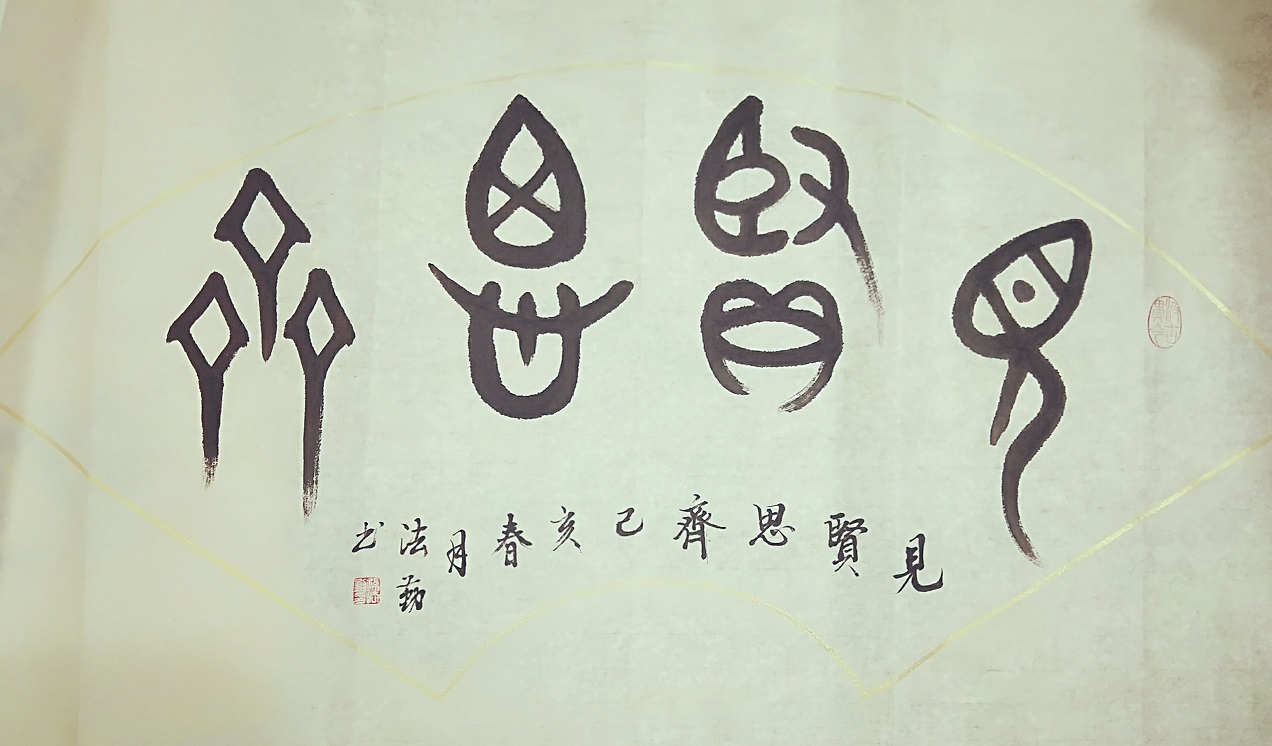 見賢思齊
見賢思齊己亥春月法勤书